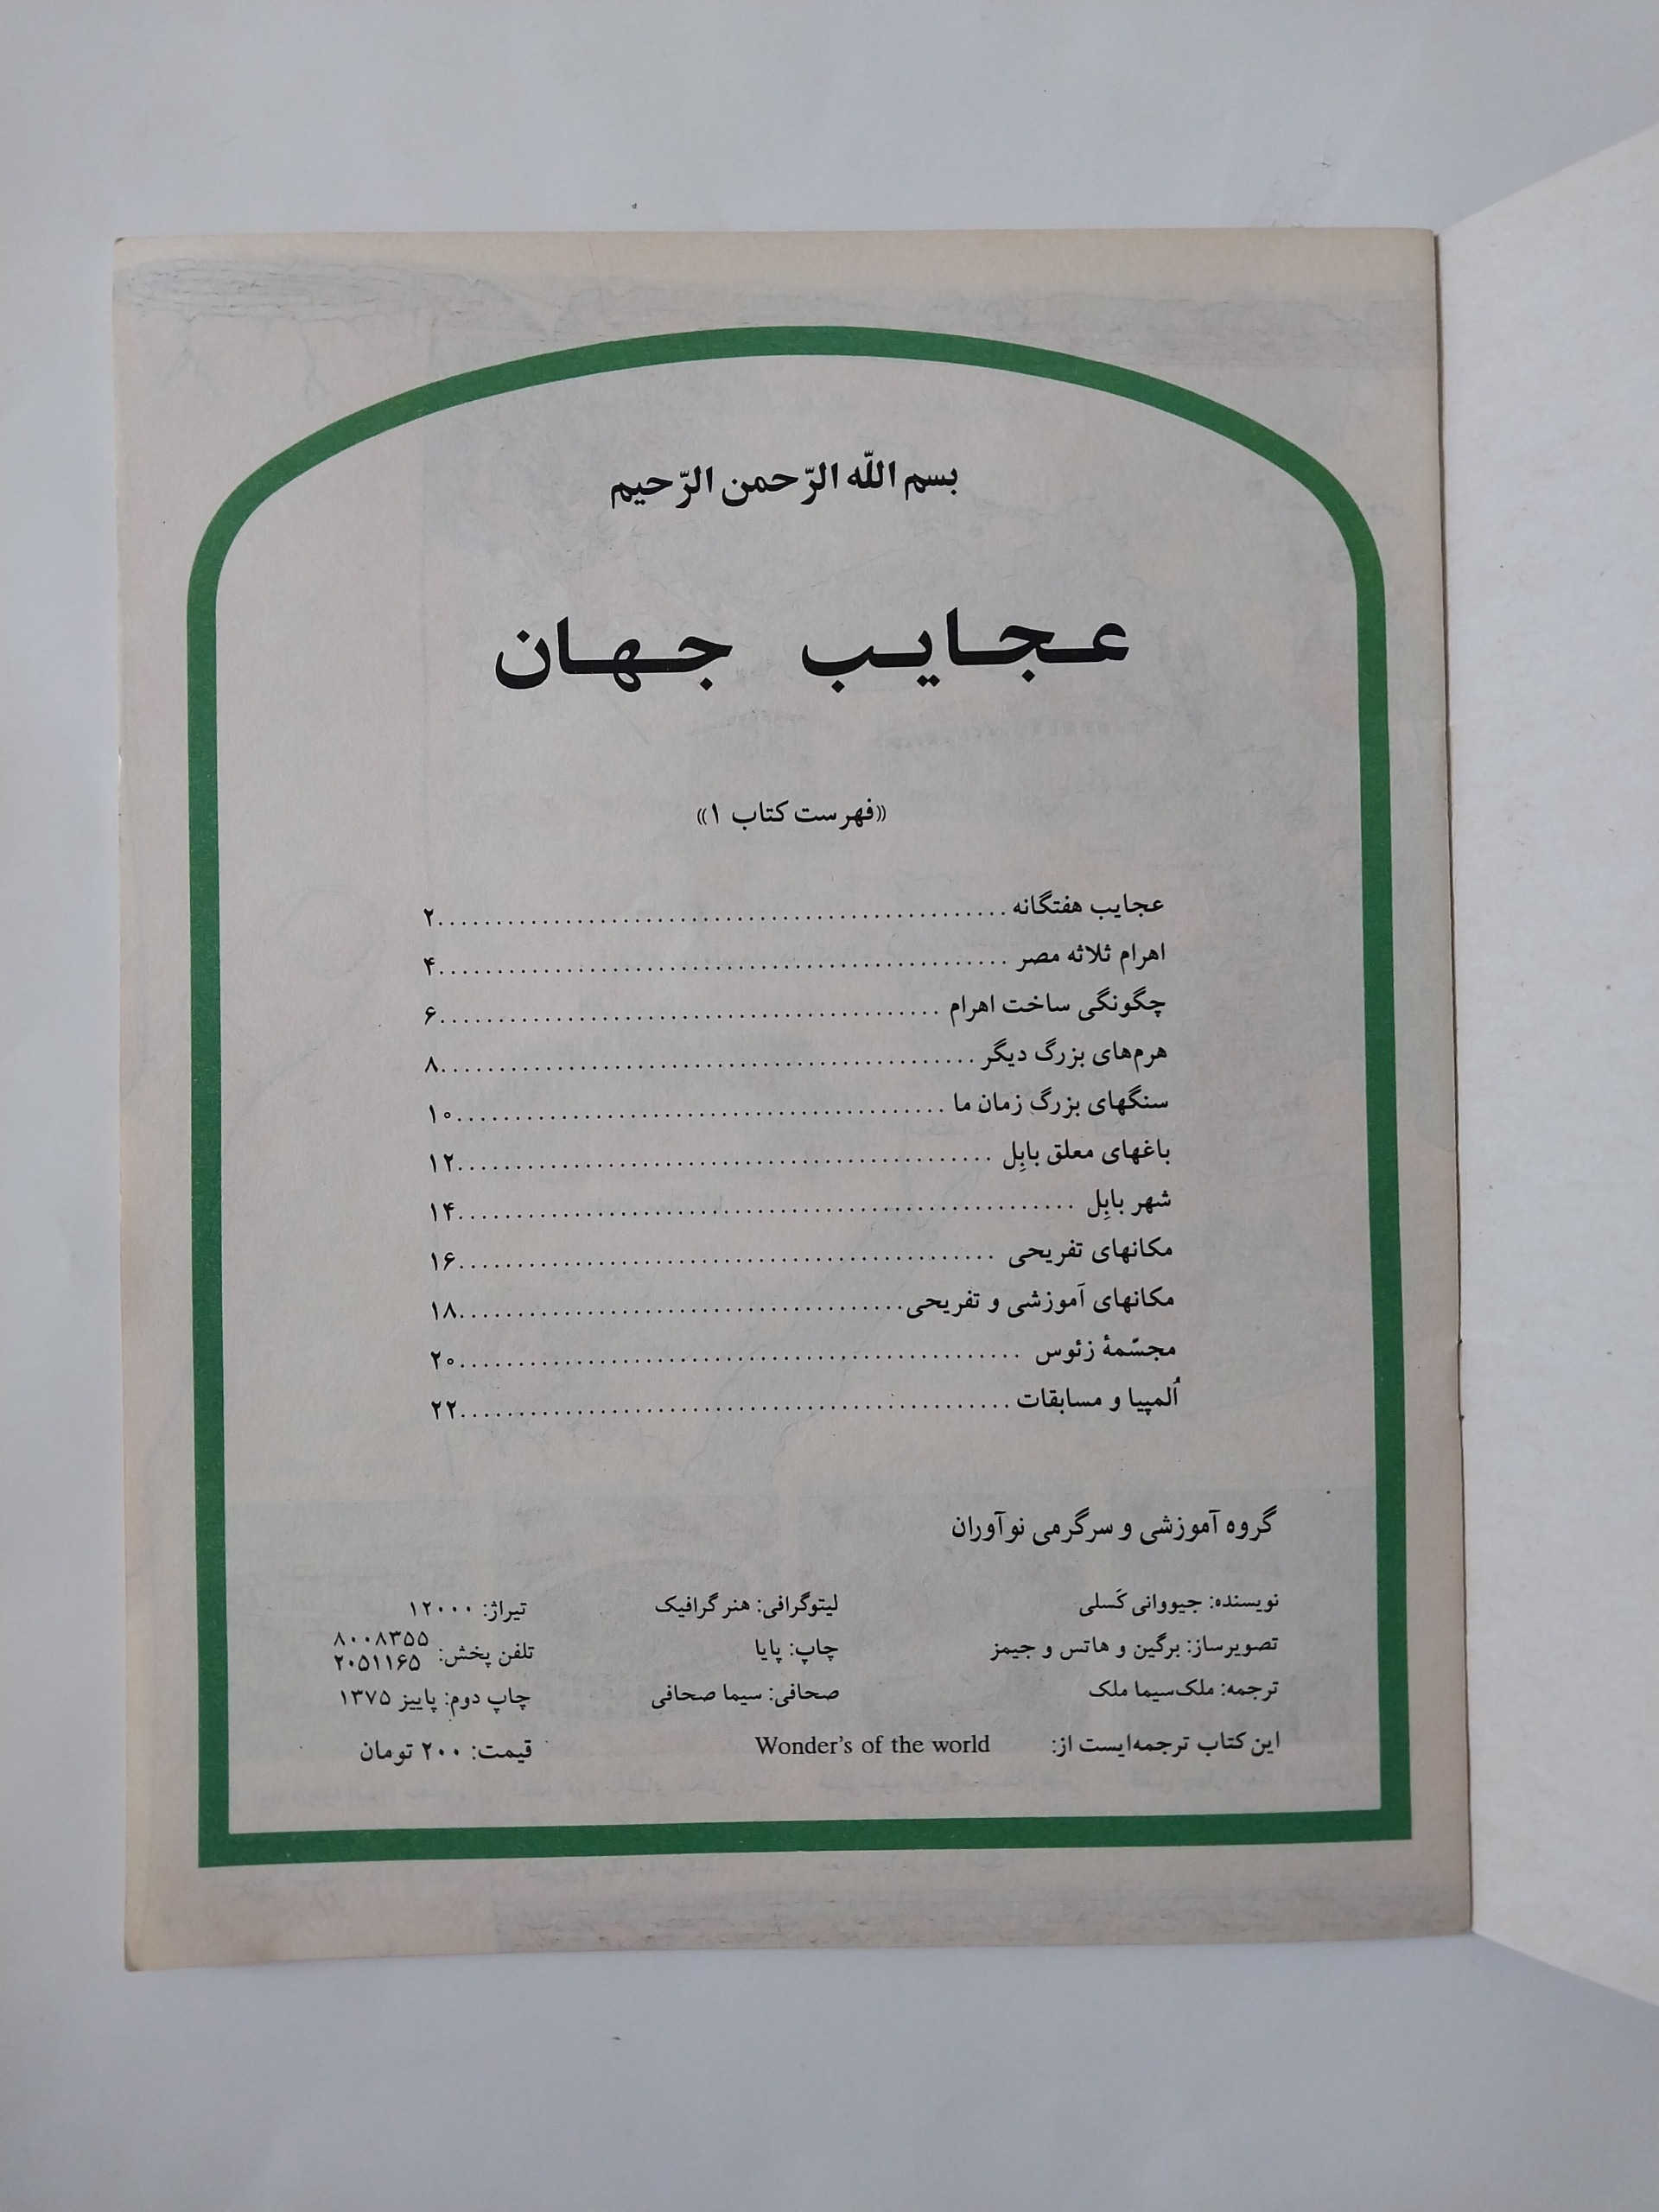 بسم اللّه الرّحمن الرّحیم
عجایب جهان
«فهرست کتاب ۱»
عجایب هفتگانه ........ ۲
اهرام ثلاثه مصر ........ ۴
چگونگی ساخت اهرام ........ ۶
هرم‌های بزرگ دیگر ........ ۸
سنگهای بزرگ زمان ما ........ ۱۰
باغهای معلق بابِل ........ ۱۲
شهر بابِل ........ ۱۴
مکانهای تفریحی ........ ۱۶
مکانهای آموزشی و تفریحی ........ ۱۸
مجسّمهٔ زئوس ........ ۲۰
اُلمپیا و مسابقات ........ ۲۲
گروه آموزشی و سرگرمی نوآوران
نویسنده: جیووانی کَسلی لیتوگرافی: هنر گرافیک تیراژ: ۱۲۰۰۰
تصویرساز: برگین و هاتس و جیمز چاپ: پایا تلفن پخش: ۸۰۰۸۳۵۵
۲۰۵۱۱۶۵
ترجمه: ملک‌سیما ملک صحافی: سیما صحافی چاپ دوم: پاییز ۱۳۷۵
این کتاب ترجمه‌ایست از: Wonder's of the world قیمت: ۲۰۰ تومان